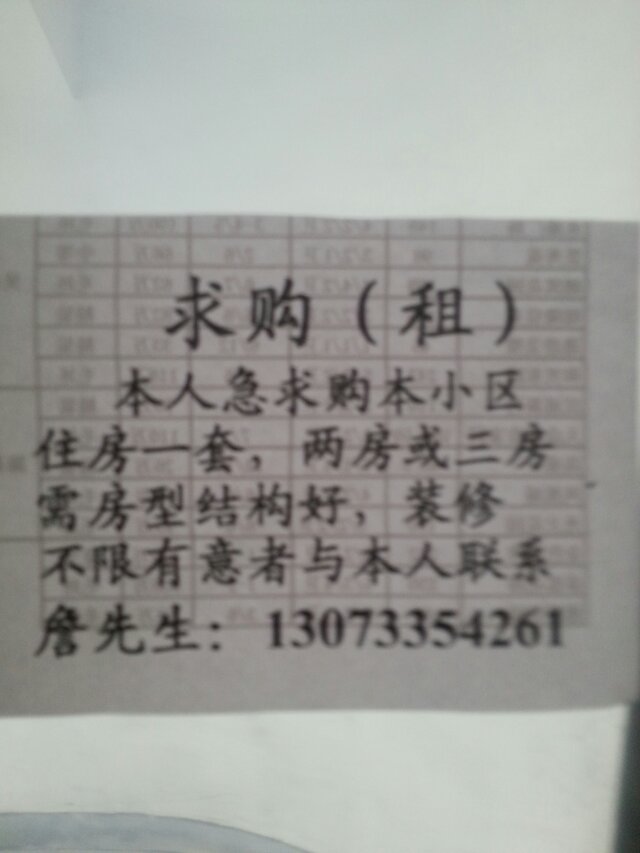 求购（租）
本人急求购本小区
住房一套，两房或三房
需房型结构好，装修
不限有意者与本人联系
詹先生：13073354261